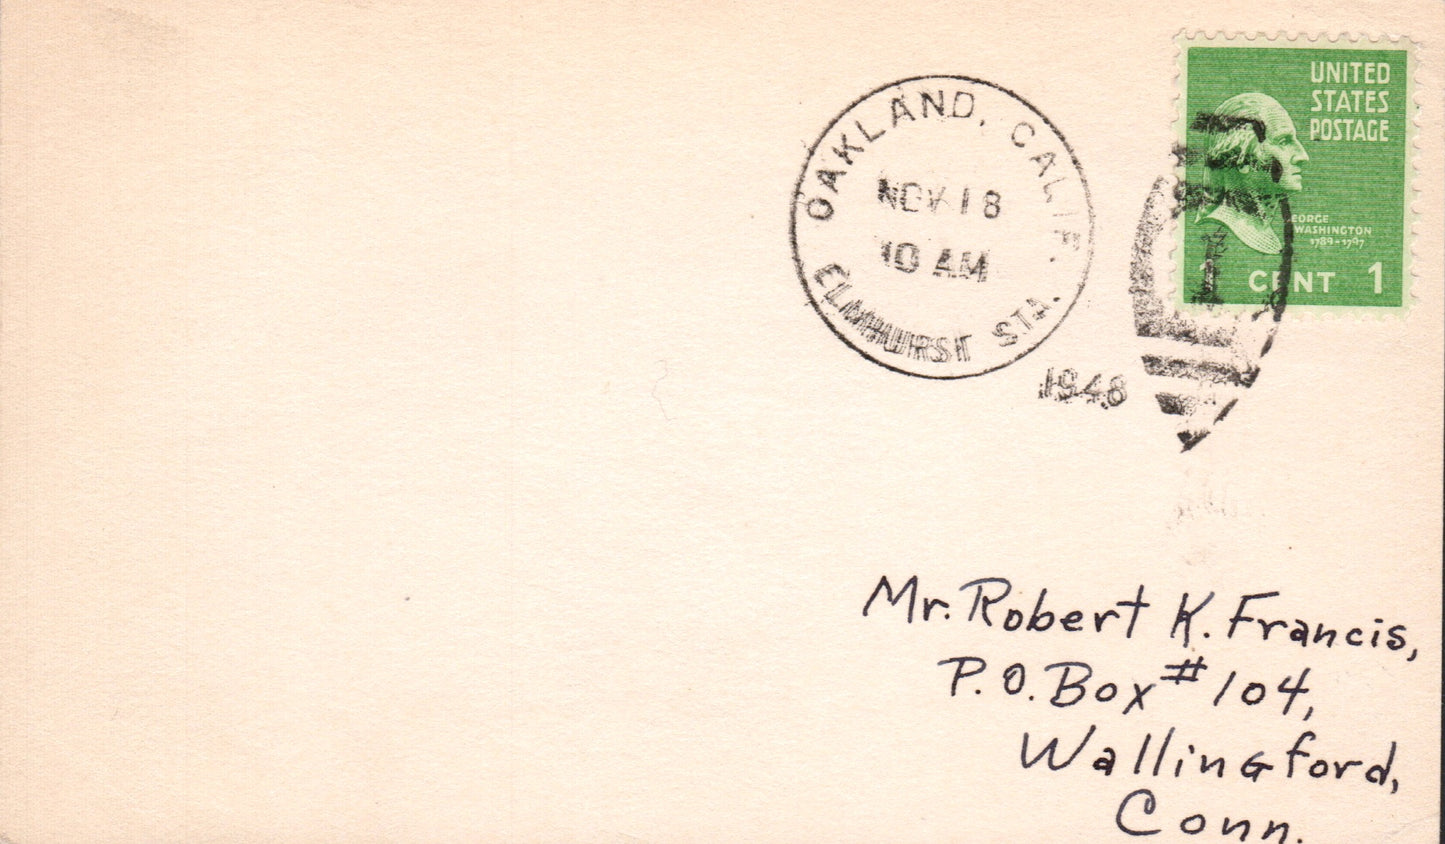 UNITED
STATES
POSTAGE
OAKLAND, CALIF.
NOV 18
10 AM
ELMHURST STA.
1948
GEORGE
WASHINGTON
1789-1797
1 CENT 1
1
Mr. Robert K. Francis,
P.O. Box #104,
Wallingford,
Conn.